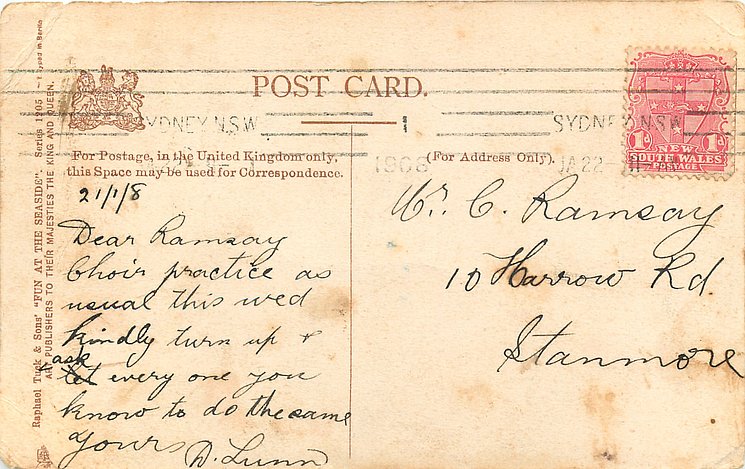 POST CARD.
SYDNEY N.S.W
1
SYDNEY NSW
1908
JA 22
1d 1d
NEW
SOUTH WALES
POSTAGE
For Postage, in the United Kingdom only,
this Space may be used for Correspondence.
(For Address Only).
21/1/8
Dear Ramsay
Choir practice as
usual this wed
kindly turn up &
ask
let every one you
know to do the same
Yours D. Lunn
Mr. C. Ramsay
10 Harrow Rd.
Stanmore
Raphael Tuck & Sons' "FUN AT THE SEASIDE" Series 1205
ART PUBLISHERS TO THEIR MAJESTIES THE KING AND QUEEN.
in Berlin